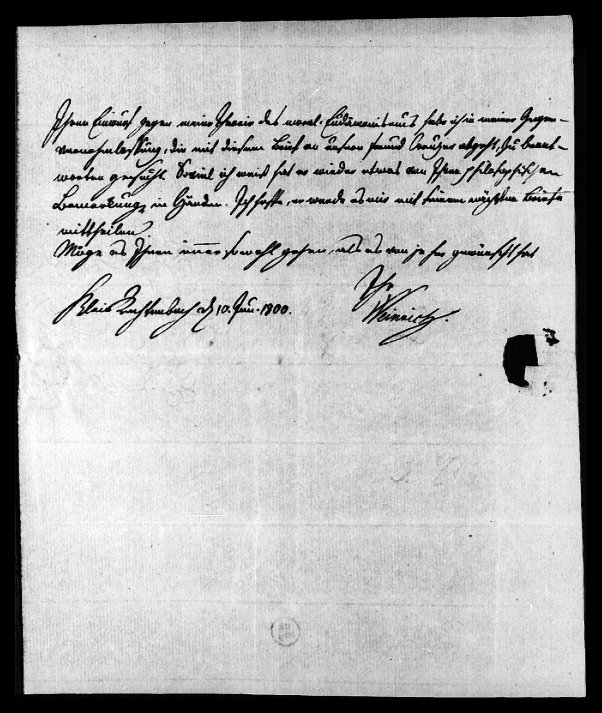 Ihren Einwurf gegen meine Theorie des moral. Eudämonismus habe ich in meiner Gegen-
, die mit diesem Brief an unsern Freund Creuzer abgeht, zu beant-
worten gesucht. Soviel ich weiß hat er wieder etwas von Ihren philosophischen
Bemerkungen in Händen. Ich hoffe, er werde es mir mit seinem nächsten Briefe
mittheilen.
Möge es Ihnen immer so wohl gehen, als es von jeher gewünscht hat
Ihr
Klein d. 10. Jun. 1800.
Weinrich.